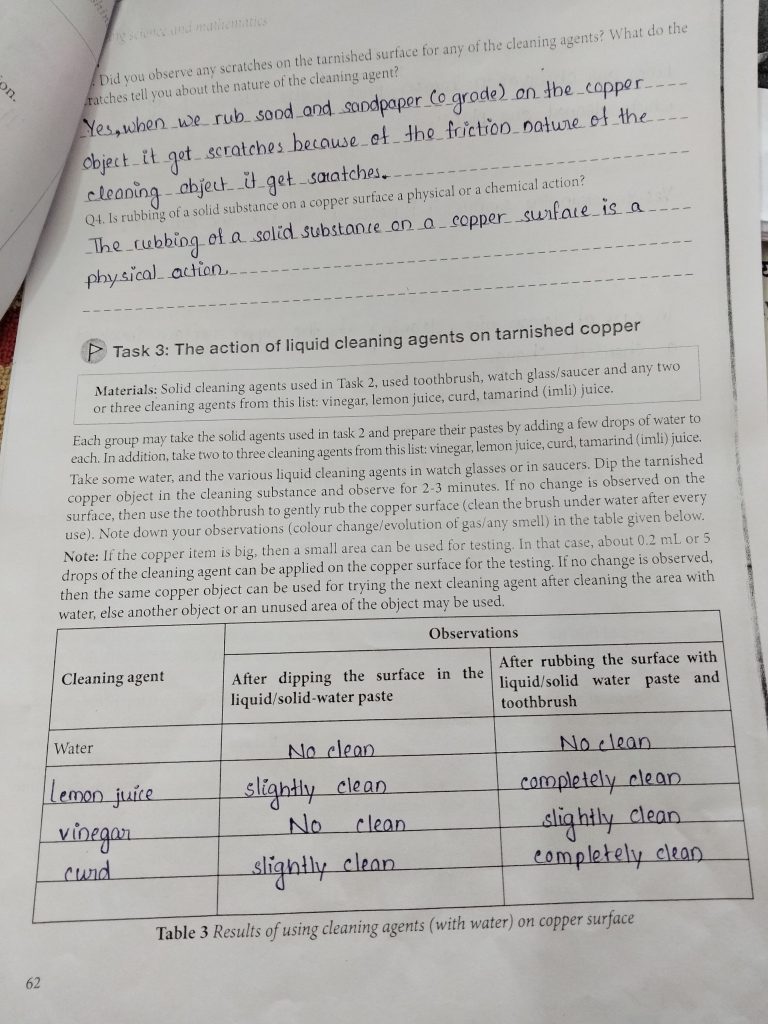 ng science and mathematics
on.
. Did you observe any scratches on the tarnished surface for any of the cleaning agents? What do the
ratches tell you about the nature of the cleaning agent?
Yes, when we rub sand and sandpaper (o grade) on the copper
object it get scratches because of the friction nature of the
cleaning object it get scratches.
Q4. Is rubbing of a solid substance on a copper surface a physical or a chemical action?
The rubbing of a solid substance on a copper surface is a
physical action.
Task 3: The action of liquid cleaning agents on tarnished copper
Materials: Solid cleaning agents used in Task 2, used toothbrush, watch glass/saucer and any two
or three cleaning agents from this list: vinegar, lemon juice, curd, tamarind (imli) juice.
Each group may take the solid agents used in task 2 and prepare their pastes by adding a few drops of water to
each. In addition, take two to three cleaning agents from this list: vinegar, lemon juice, curd, tamarind (imli) juice.
Take some water, and the various liquid cleaning agents in watch glasses or in saucers. Dip the tarnished
copper object in the cleaning substance and observe for 2-3 minutes. If no change is observed on the
surface, then use the toothbrush to gently rub the copper surface (clean the brush under water after every
use). Note down your observations (colour change/evolution of gas/any smell) in the table given below.
Note: If the copper item is big, then a small area can be used for testing. In that case, about 0.2 mL or 5
drops of the cleaning agent can be applied on the copper surface for the testing. If no change is observed,
then the same copper object can be used for trying the next cleaning agent after cleaning the area with
water, else another object or an unused area of the object may be used.
Observations
Cleaning agent
After dipping the surface in the
liquid/solid-water paste
After rubbing the surface with
liquid/solid water paste and
toothbrush
Water
No clean
No clean
lemon juice
slightly clean
completely clean
vinegar
No clean
slightly clean
curd
slightly clean
completely clean
Table 3 Results of using cleaning agents (with water) on copper surface
62